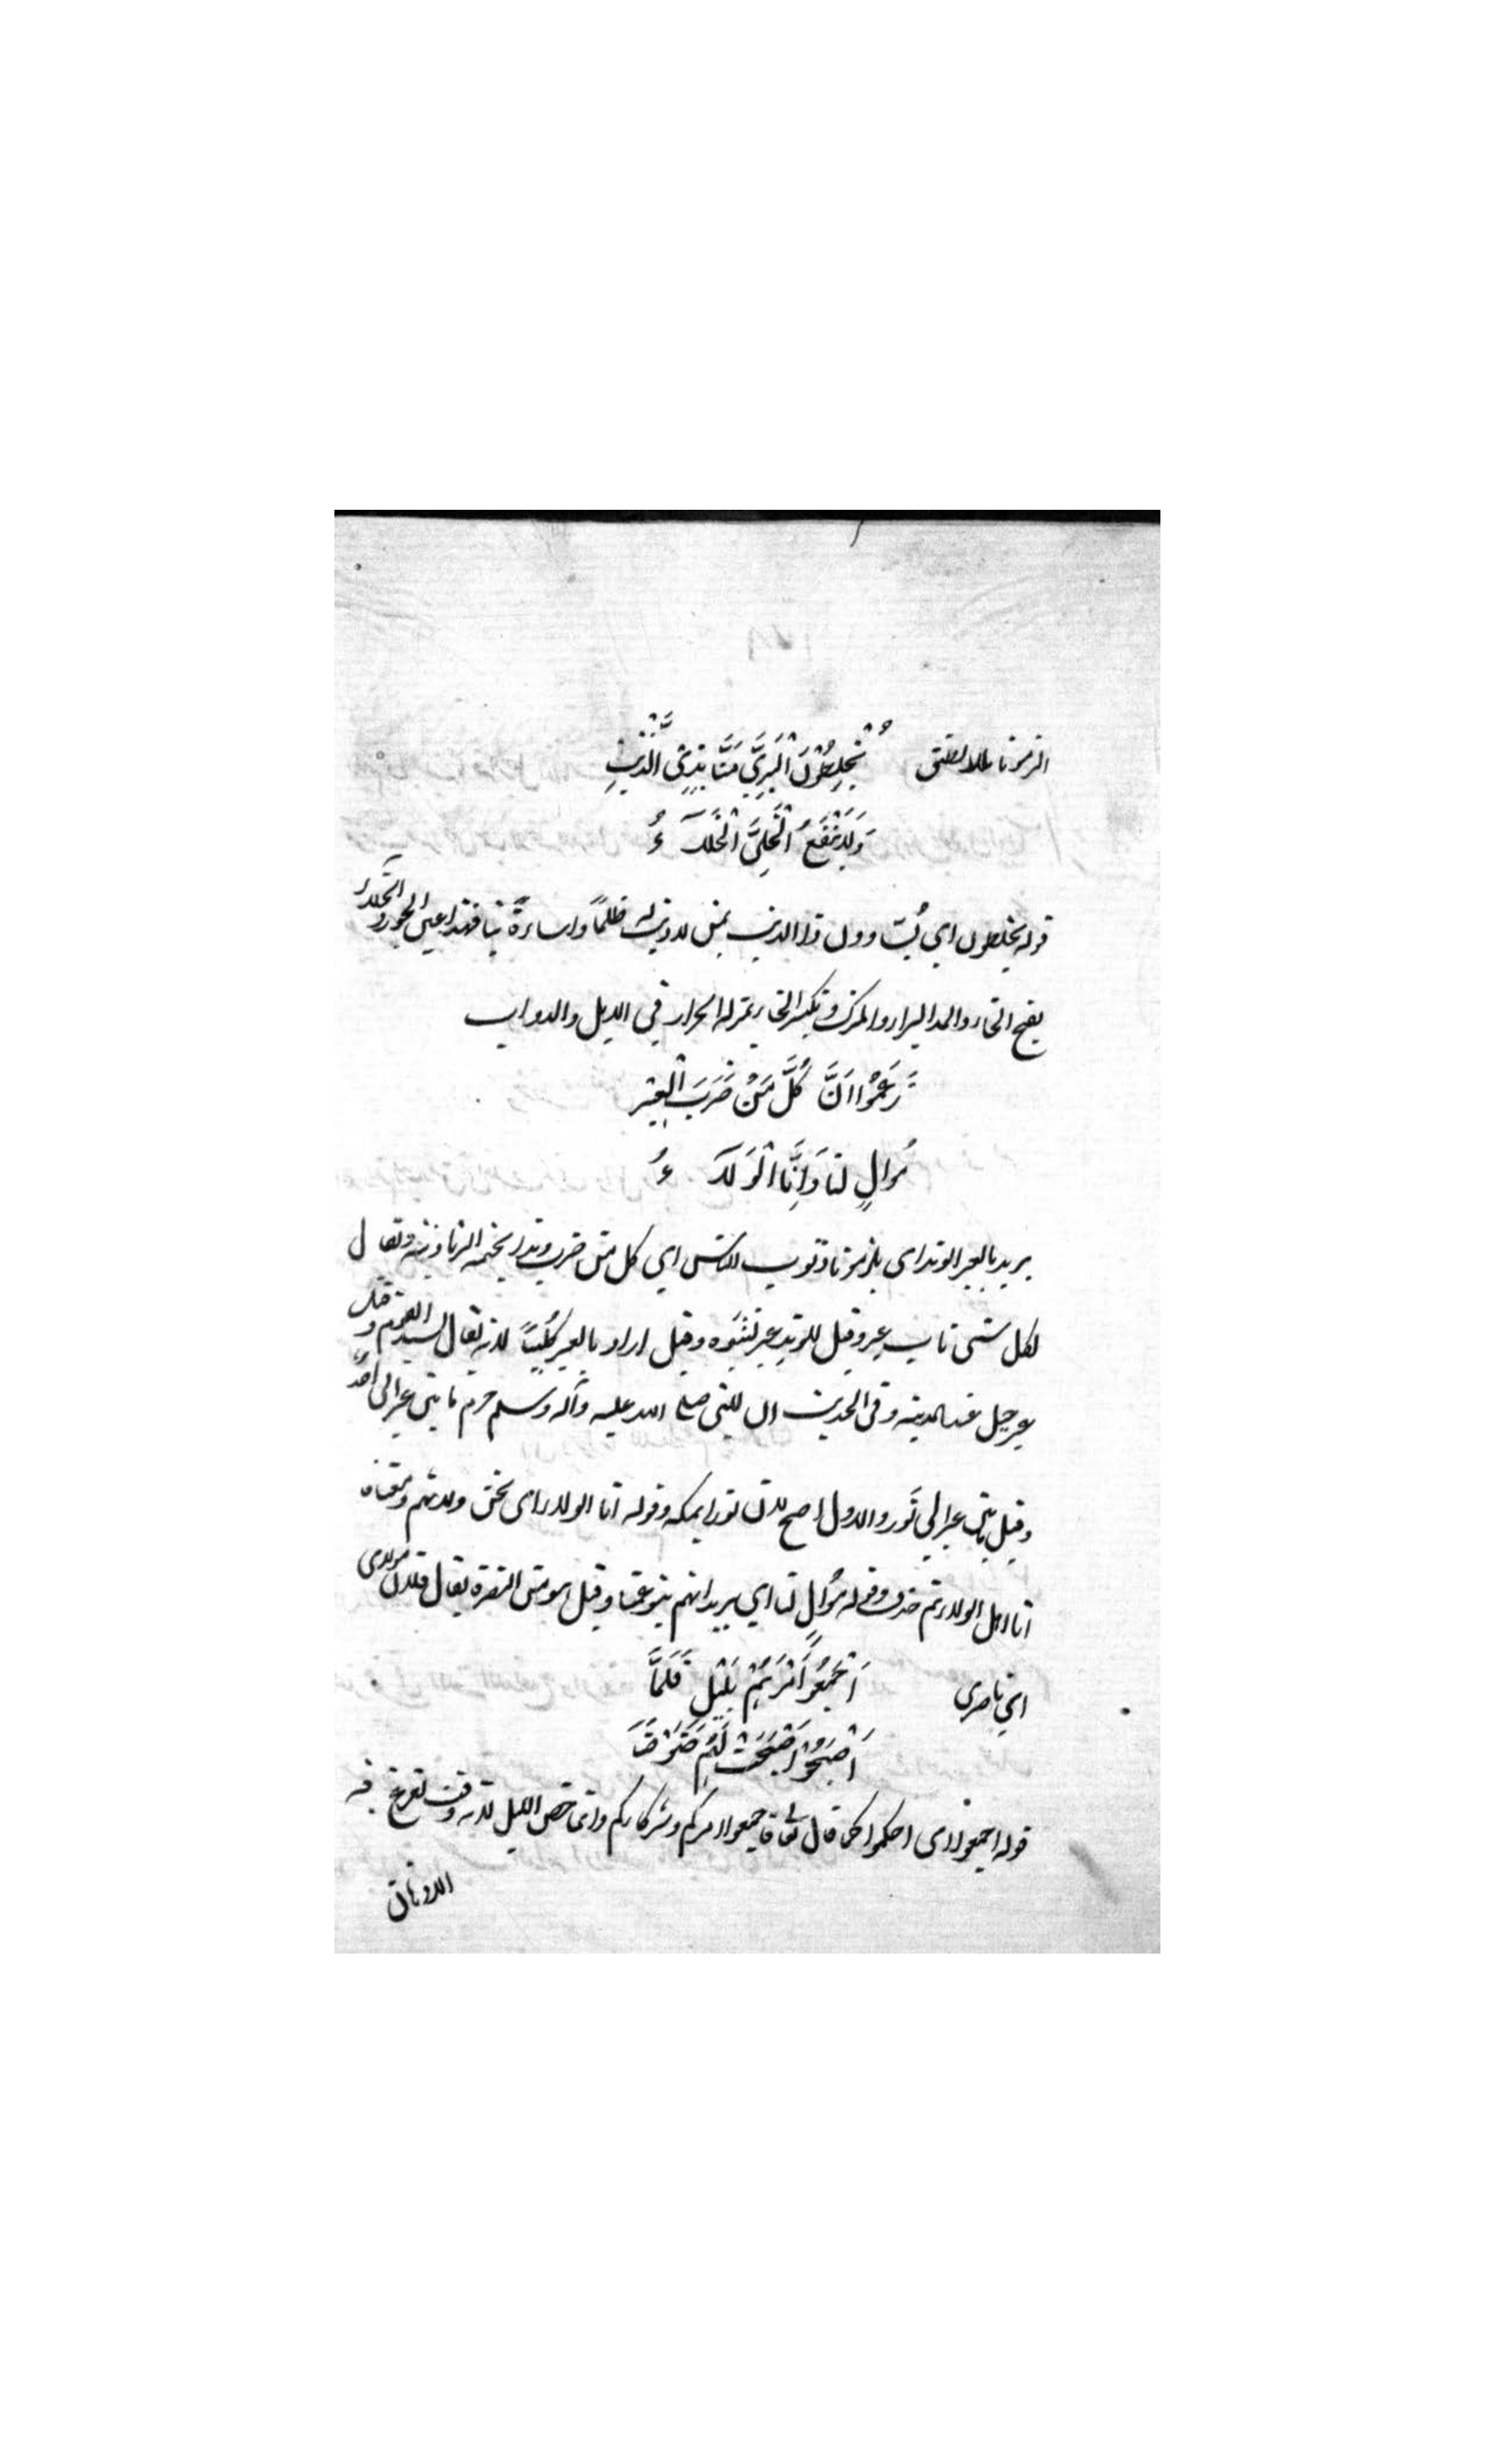 الزمونا ما لا نطيق يَخْلِطُوْنَ الْبَرِيَّ مِنَّا بِذِى الذَّنْبِ
وَلَا يَنْفَعُ الْخَلِيَّ الْخَلَاءُ
قوله يخلطون اي يساوون ذا الذنب بمن لا ذنب له ظلماً واساءة بنا فهذا عين الجور والخلاء
بفتح الخاء والمد البراء والترك وبكسر الخاء بمنزلة الحران في الابل والدواب
زَعَمُوْا اَنَّ كُلَّ مَنْ ضَرَبَ الْعِيْرَ
مُوَالٍ لَنَا وَاَنَّا الْوَلَاءُ
يريد بالعير الوتد اى يلزمونا ذنوب الناس اي كل من ضرب وتدا لخيمة الزمونا ذنبه ويقال
لكل شى ناب عير وقيل للوتد عير لنتوه وقيل اراد بالعير كليبا لانه يقال لسيد القوم عير وقيل
عير جبل عند المدينة وفي الحديث ان النبي صلى الله عليه وآله وسلم حرم ما بين عير الى احد
وقيل ما بين عير الي ثور والاول اصح لان ثورا بمكة وقوله انا الولاء اى نحن ولاتهم ومعناه
انا اهل الولاء ثم حذف وقوله مُوالٍ لنا اي يريد انهم بنو عمنا وقيل هو من النصرة يقال فلان مولاى
اي ناصرى اَجْمَعُوْا اَمْرَهُمْ بِلَيْلٍ فَلَمَّا
اَصْبَحُوْا اَصْبَحَتْ لَهُمْ ضَوْضَاءُ
قوله اجمعوا اى احكموا كما قال تعالى فاجمعوا امركم وشركاءكم وانما خص الليل لانه وقت تفرغ فيه
الاذهان